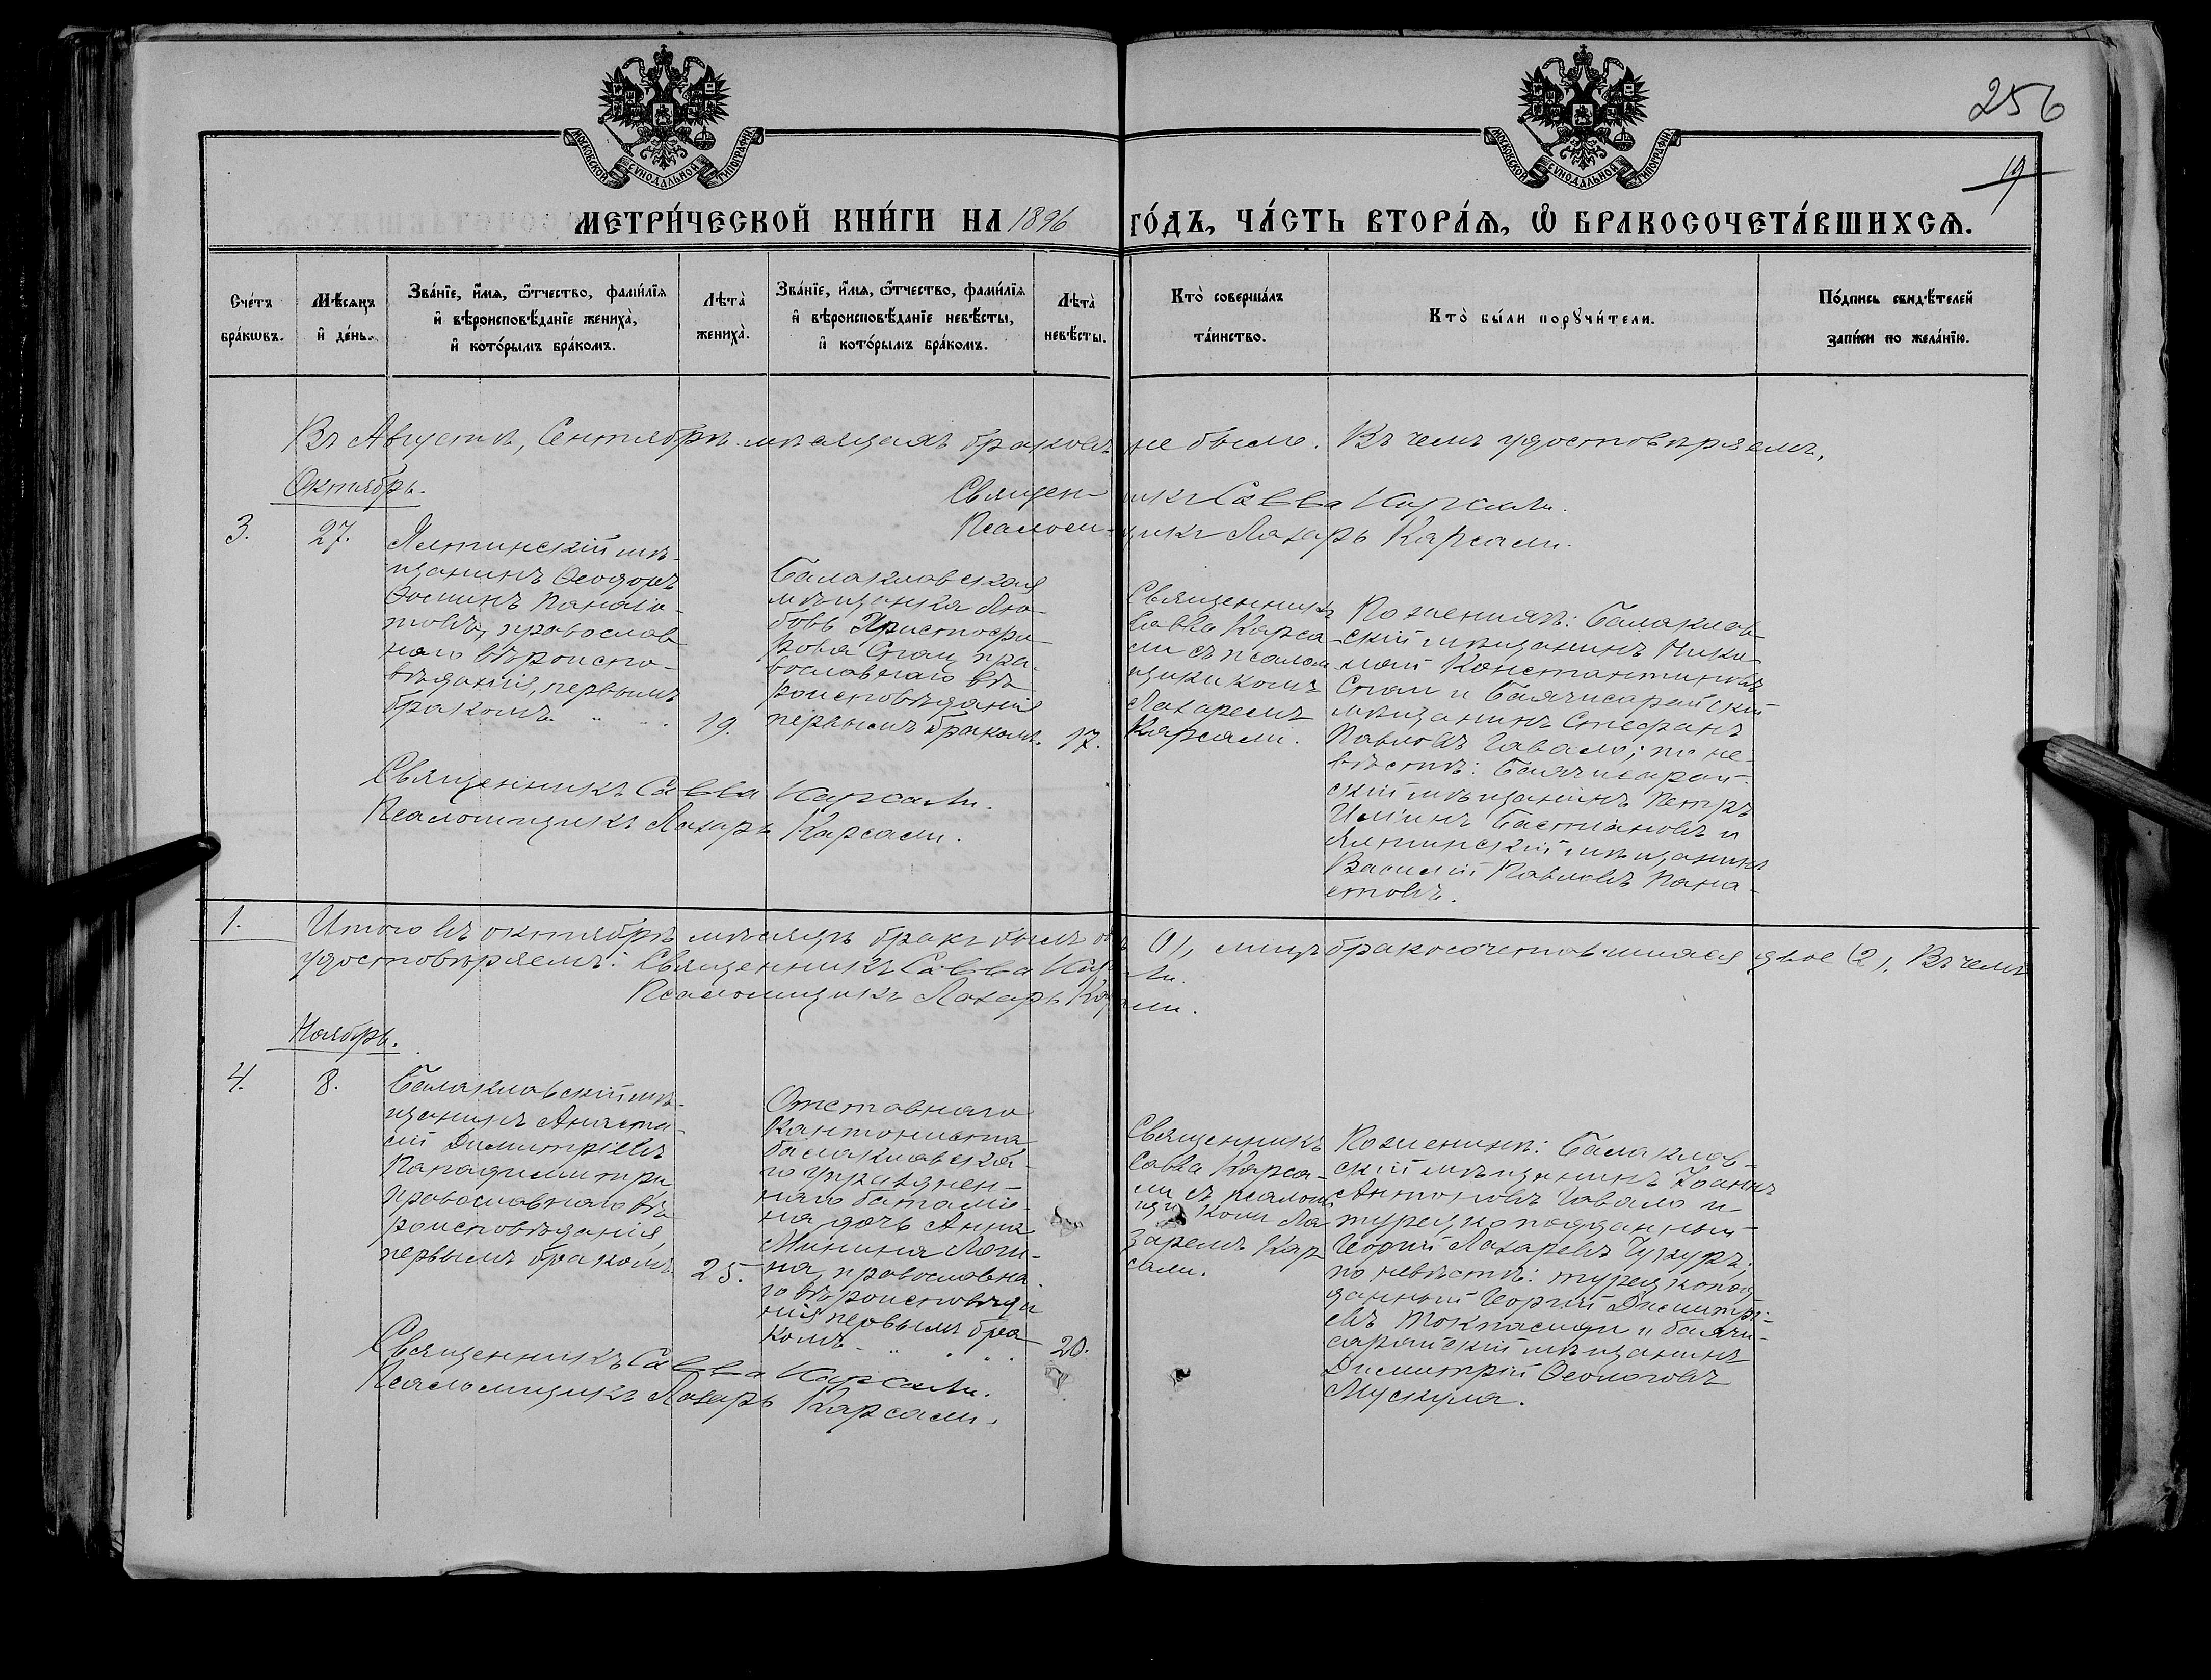 256
19
МОСКОВСКОЙ СѴНОДАЛЬНОЙ ТИПОГРАФІИ
МОСКОВСКОЙ СѴНОДАЛЬНОЙ ТИПОГРАФІИ
МЕТРИ́ЧЕСКОЙ КНИ́ГИ НА 1896 ГО́ДЪ, ЧА́СТЬ ВТОРА́Ѧ, Ѡ҆ БРАКОСОЧЕТА́ВШИХСѦ.
Сче́тъ
бра́кѡвъ.
Мѣ́сѧцъ
и҆ де́нь.
Зва́нїе, и҆́мѧ, ѻ҆́тчество, фами́лїѧ
и҆ вѣроисповѣ́данїе жениха̀,
и҆ кото́рымъ бра́комъ.
Лѣта̀
жениха̀.
Зва́нїе, и҆́мѧ, ѻ҆́тчество, фами́лїѧ
и҆ вѣроисповѣ́данїе невѣ́сты,
и҆ кото́рымъ бра́комъ.
Лѣта̀
невѣ́сты.
Кто̀ соверша́лъ
та́инство.
Кто̀ бы́ли порꙋчи́тели.
По́дпись свидѣ́телей
за́писи по жела́нїю.
Въ Августѣ, Сентябрѣ мѣсяцахъ браковъ не было. Въ чемъ удостовѣряемъ,
Октябрь.
Священникъ Савва Карсали.
Псаломщикъ Лазарь Карсали.
3.
27.
Ялтинскій мѣ-
щанинъ Ѳеодоръ
Ѳоминъ Панаіо-
товъ, православ
наго вѣроиспо-
вѣданія, первымъ
бракомъ
19.
Балаклавская
мѣщанка Лю-
бовь Христофо-
рова Спаи, пра-
вославнаго вѣ
роисповѣданія
первымъ бракомъ.
17.
Священникъ
Савва Карса-
ли съ псалом
щикомъ
Лазаремъ
Карсали.
По женихѣ: Балаклав-
скій мѣщанинъ Нико-
лай Константиновъ
Спаи и Бахчисарайскій
мѣщанинъ Стефанъ
Павловъ Гавало; по не-
вѣстѣ: Бахчисарай-
скій мѣщанинъ Петръ
Ильинъ Бастіановъ и
Ялтинскій мѣщанинъ
Василій Павловъ Пана-
Священникъ Савва Карсали.
Псаломщикъ Лазарь Карсали.
1.
Итого въ октябрѣ мѣсяцѣ бракъ былъ (1), лицъ бракосочетавшихся двое (2). Въ чемъ
удостовѣряемъ: Священникъ Савва Карсали.
Псаломщикъ Лазарь Карсали.
Ноябрь.
4.
8.
Балаклавскій мѣ-
щанинъ Анаста-
сій Димитріевъ
Пападимитри
православнаго вѣ
роисповѣданія,
первымъ бракомъ
25.
Отставнаго
кантониста
балаклавска-
го упразднен-
наго баталіо-
на дочь Анна
Минина Логи-
на, православна-
го вѣроисповѣда
нія первымъ бра
комъ
20.
Священникъ
Савва Карса-
ли съ псалом
щикомъ Ла
заремъ Кар
сали.
По женихѣ: Балаклав-
скій мѣщанинъ Іоаннъ
Антоновъ Гавало и
турецкоподданный
Георгій Лазаревъ Чукуръ;
по невѣстѣ: турецкопод
данный Георгій Димитрі-
евъ и бахчи-
сарайскій мѣщанинъ
Димитрій Ѳеологовъ
Мускула.
Священникъ Савва Карсали.
Псаломщикъ Лазарь Карсали.